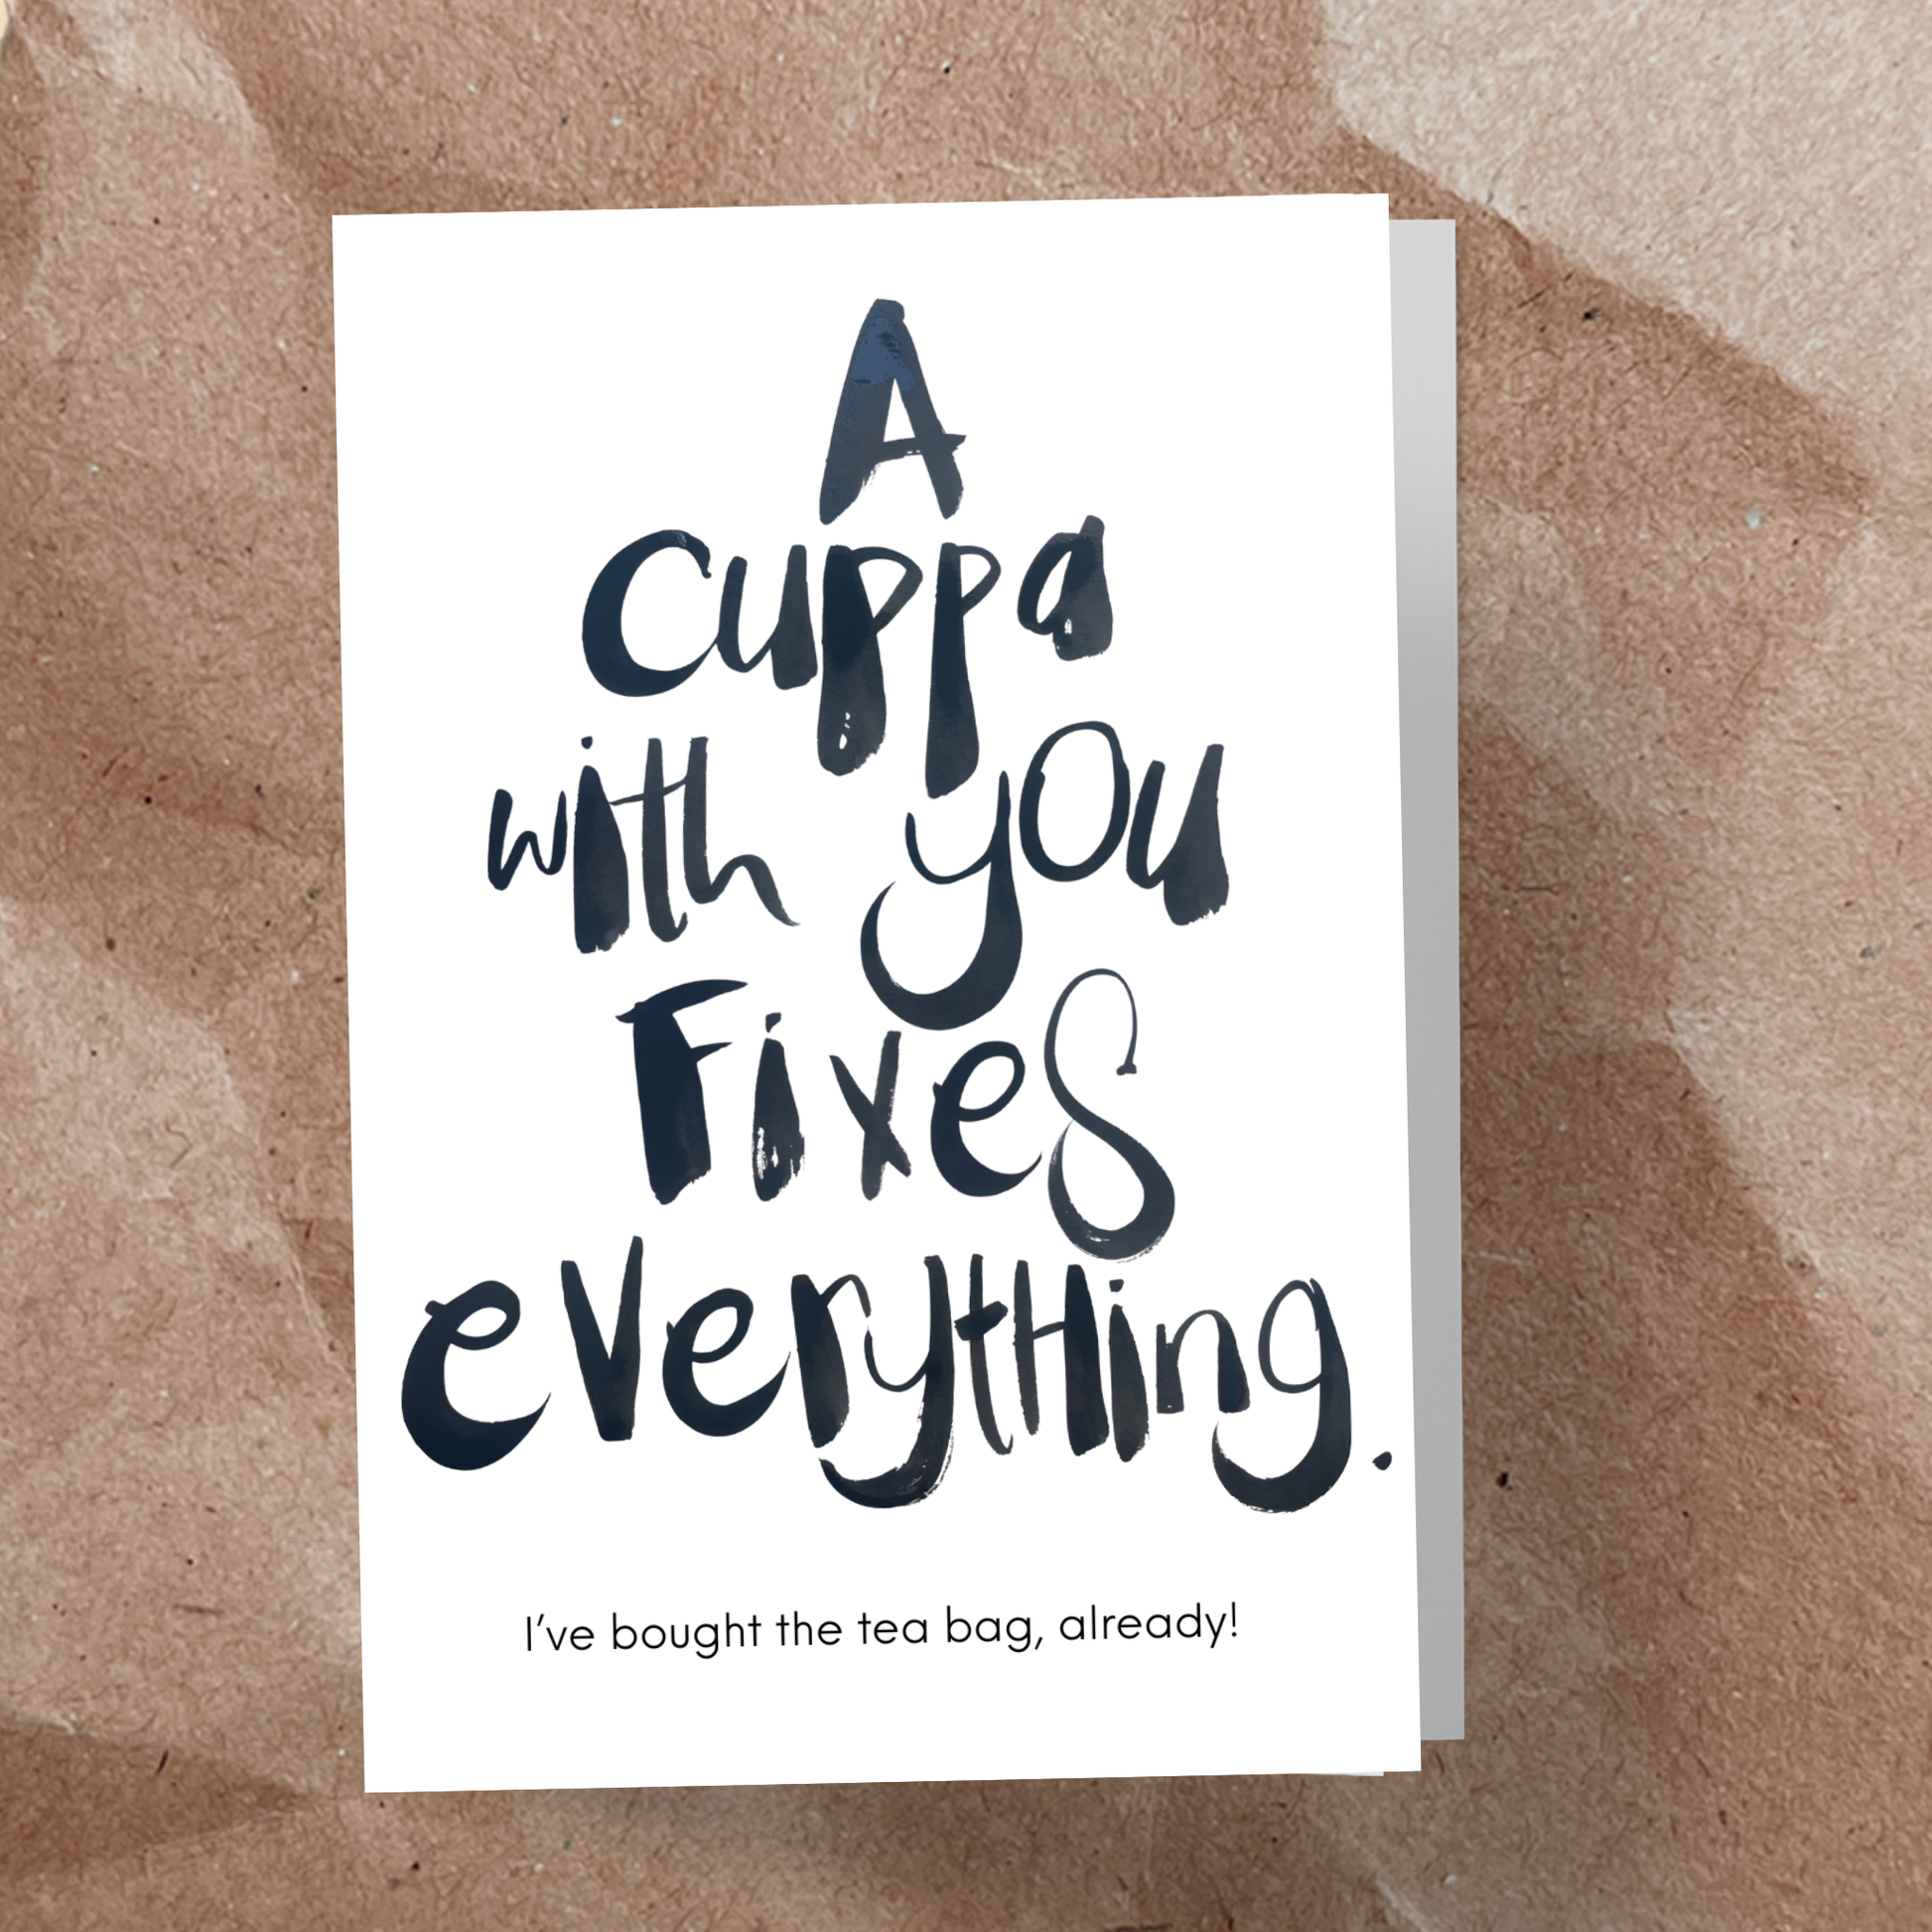 A
cuppa
with you
Fixes
everytHing.
I've bought the tea bag, already!